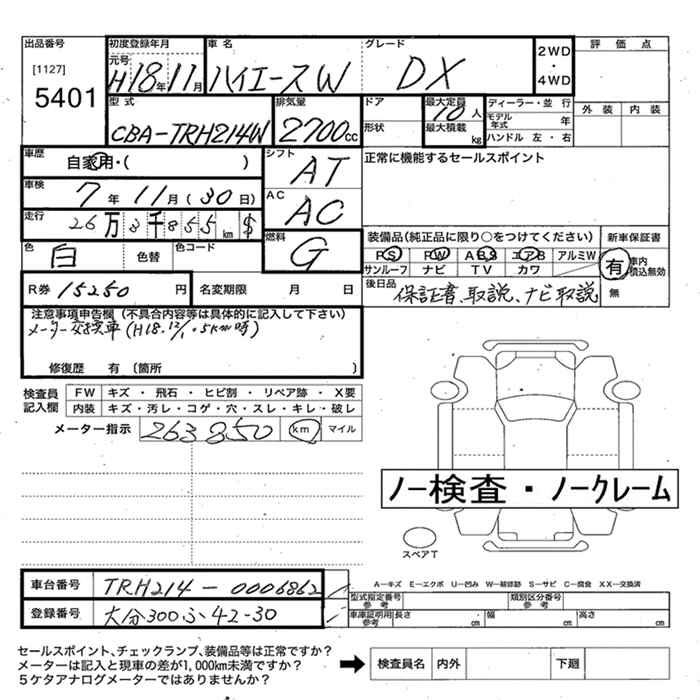 出品番号 初度登録年月 車名 グレード 2WD・4WD 評価点
[1127] 元号
5401 H18年11月 ハイエースW DX 外装 内装
型式 排気量 ドア 最大定員 ディーラー・並行
CBA-TRH214W 2700cc 形状 10人 モデル年式 年
最大積載 kg ハンドル 左・右
車歴 自家用・( ) シフト AT 正常に機能するセールスポイント
車検 7年11月(30日) AC AC
走行 26万3千855km $ 燃料 G 装備品(純正品に限り○をつけてください) 新車保証書
色 白 色替 色コード PS FW ABS エアB アルミW 有 車内積込無効
サンルーフ ナビ TV カワ
R券 15250円 名変期限 月 日 後日品 保証書、取説、ナビ取説 無
注意事項申告欄(不具合内容等は具体的に記入して下さい)
メーター交換車(H18.12/1.5km時)
修復歴 有〔箇所 〕
検査員記入欄 FW キズ・飛石・ヒビ割・リペア跡・X要
内装 キズ・汚レ・コゲ・穴・スレ・キレ・破レ
メーター指示 263850 km マイル
ノー検査・ノークレーム
スペアT
車台番号 TRH214-0006862
A-キズ E-エクボ U-凹み W-補修跡 S-サビ C-腐食 XX-交換済
型式指定番号 参考 類別区分番号 参考
登録番号 大分300ふ42-30
車庫証明用 参考 長さ cm 幅 cm 高さ cm
セールスポイント、チェックランプ、装備品等は正常ですか?
メーターは記入と現車の差が1,000km未満ですか?
5ケタアナログメーターではありませんか?
検査員名 内外 下廻